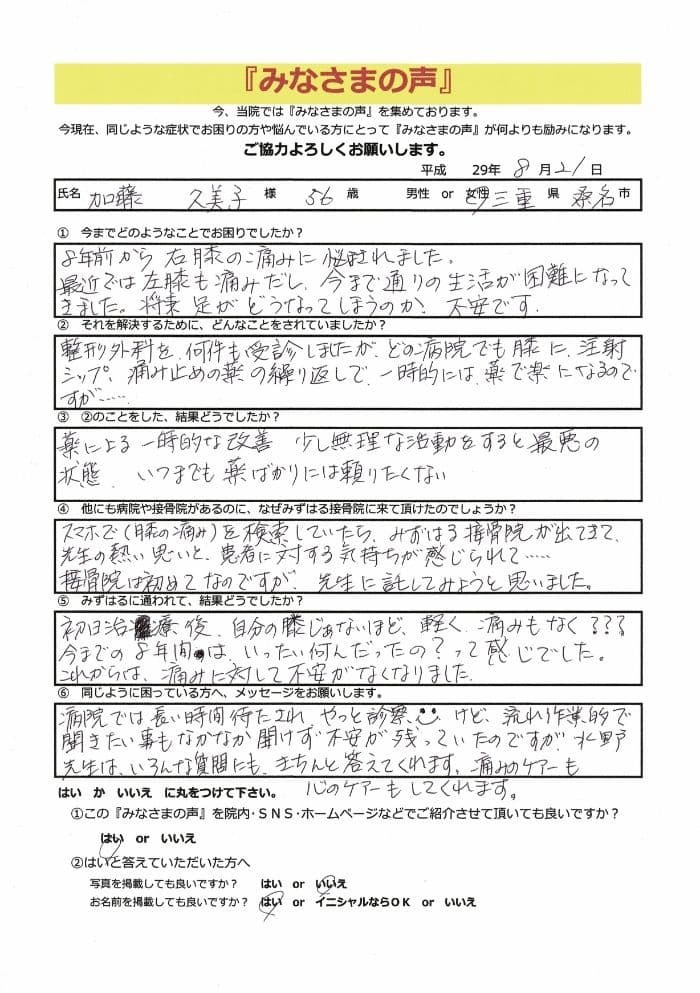 『みなさまの声』
今、当院では『みなさまの声』を集めております。
今現在、同じような症状でお困りの方や悩んでいる方にとって『みなさまの声』が何よりも励みになります。
ご協力よろしくお願いします。
平成 29年 8 月 21 日
氏名 加藤 久美子 様 56 歳 男性 or 女性 三重 県 桑名 市
① 今までどのようなことでお困りでしたか？
8年前から右膝の痛みに悩まされました。
最近では左膝も痛みだし、今まで通りの生活が困難になって
きました。将来 足がどうなってしまうのか、不安です.
② それを解決するために、どんなことをされていましたか？
整形外科を、何件も受診しましたが、どの病院でも膝に、注射
シップ、痛み止めの薬の繰り返しで、一時的には、薬で楽になるので
すが……
③ ②のことをした、結果どうでしたか？
薬による一時的な改善 少し無理な活動をすると最悪の
状態. いつまでも薬ばかりには頼りたくない
④ 他にも病院や接骨院があるのに、なぜみずはる接骨院に来て頂けたのでしょうか？
スマホで(膝の痛み)を検索していたら、みずはる接骨院が出てきて、
先生の熱い思いと、患者に対する気持ちが感じられて……
接骨院は初めてなのですが、先生に託してみようと思いました。
⑤ みずはるに通われて、結果どうでしたか？
初日治療後、自分の膝じゃないほど、軽く、痛みもなく???
今までの8年間は、いったい何んだったの?って感じでした。
これからは、痛みに対して不安がなくなりました.
⑥ 同じように困っている方へ、メッセージをお願いします。
病院では長い時間待たされ、やっと診察 けど、流れ作業的で
聞きたい事もなかなか聞けず不安が残っていたのですが 水野
先生は、いろんな質問にも、きちんと答えてくれます。痛みのケアーも
心のケアーもしてくれます。
はい か いいえ に丸をつけて下さい。
①この『みなさまの声』を院内・SNS・ホームページなどでご紹介させて頂いても良いですか？
はい or いいえ
②はいと答えていただいた方へ
写真を掲載しても良いですか？ はい or いいえ
お名前を掲載しても良いですか？ はい or イニシャルならOK or いいえ